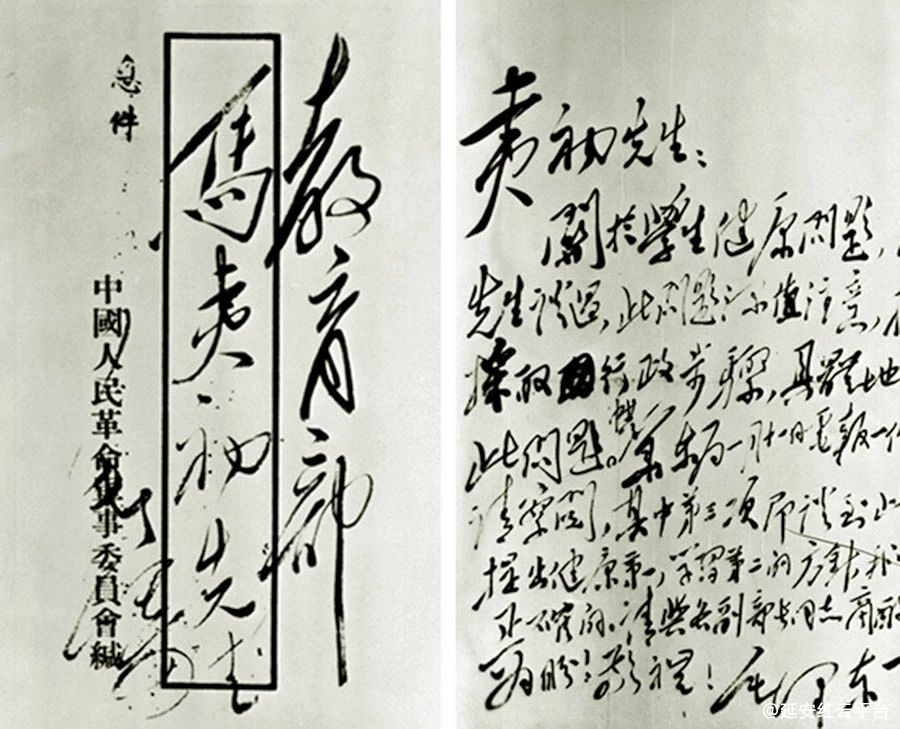 教育部
馬夷初先生
急件
中國人民革命軍事委員會緘
夷初先生：
關於學生健康問題，
先生談過，此問題深值注意，
採取行政步驟，具體地
此問題。東局一月十一日電報一件
請察閱，其中第三項即談到此
提出健康第一，學習第二的方針，我
正確的。請與各副部長同志商酌
為盼！敬禮！毛澤東
@延安红云平台